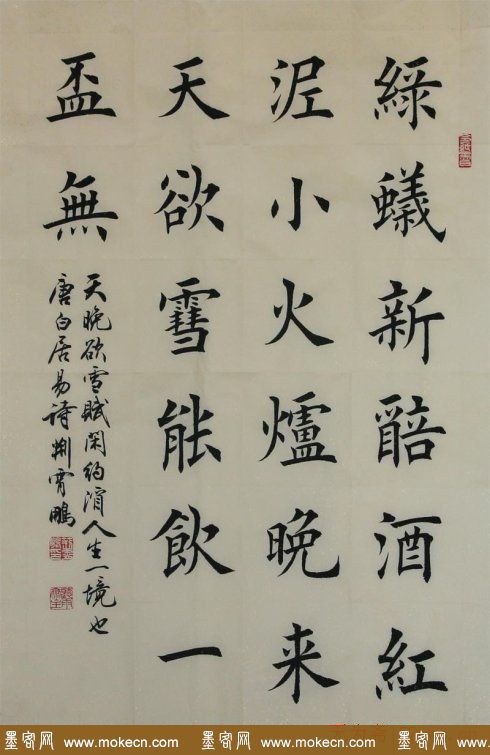 綠蟻新醅酒紅
泥小火爐晚来
天欲雪能飲一
盃無
天晚欲雪賦闲约人生一境也
唐白居易诗荆霄鵬
墨客网 www.mokecn.com 墨客网 www.mokecn.com